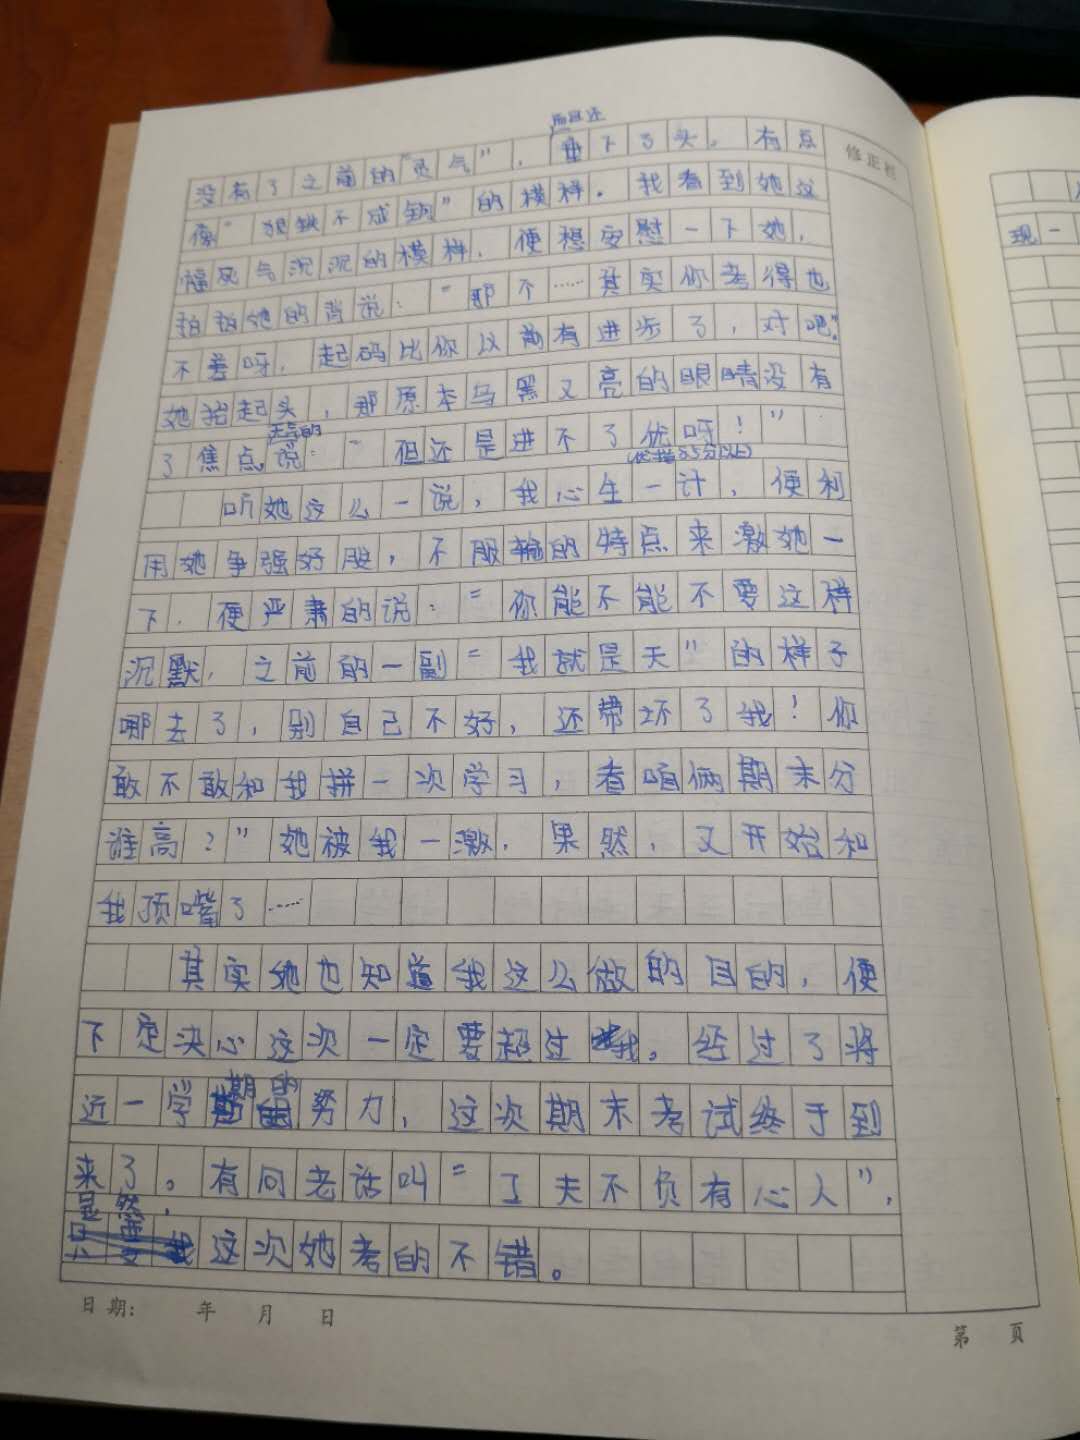 而且还
没有了之前的“灵气”，垂下了头。有点
像“恨铁不成钢”的模样。我看到她这
幅死气沉沉的模样，便想安慰一下她，
拍拍她的背说：“那个……其实你考得也
不差呀，起码比你以前有进步了，对吧。”
她抬起头，那原本乌黑又亮的眼睛没有
无奈的
了焦点说：“但还是进不了优呀！”
(优指85分以上)
听她这么一说，我心生一计，便利
用她争强好胜，不服输的特点来激她一
下．便严肃的说：“你能不能不要这样
沉默，之前的一副“我就是天”的样子
哪去了，别自己不好，还带坏了我！你
敢不敢和我拼一次学习，看咱俩期末分
谁高？”她被我一激，果然，又开始和
我顶嘴了……
其实她也知道我这么做的目的，便
下定决心这次一定要超过我。经过了将
近一学期的努力，这次期末考试终于到
来了。有问老话叫“工夫不负有心人”，
显然，
这次她考的不错。
修正栏
日期： 年 月 日
第 页
现一